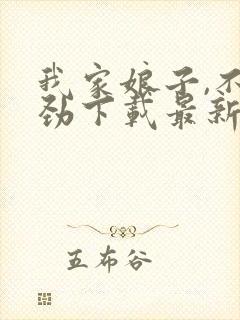 我家娘子,不
劲下载最新
五布谷